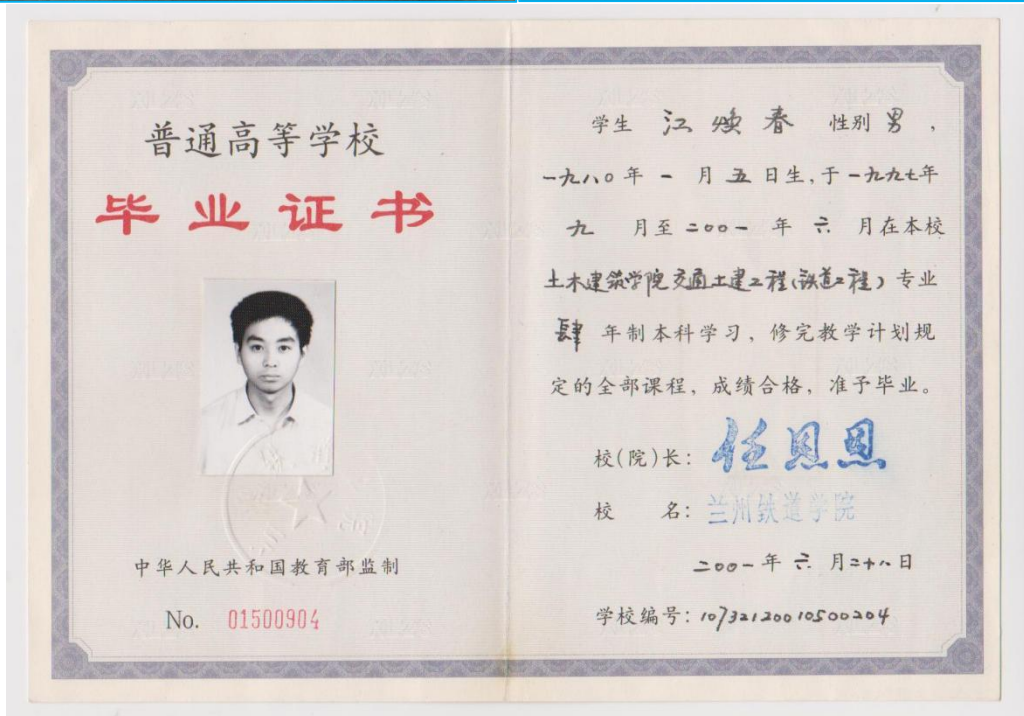 普通高等学校
毕业证书
中华人民共和国教育部监制
No. 01500904
学生 江焕春 性别 男，
一九八〇年一月五日生，于一九九七年
九月至二〇〇一年六月在本校
土木建筑学院交通土建工程（铁道工程）专业
肆年制本科学习，修完教学计划规
定的全部课程，成绩合格，准予毕业。
校（院）长：任恩恩
校名：兰州铁道学院
二〇〇一年六月二十八日
学校编号：10732120010500204